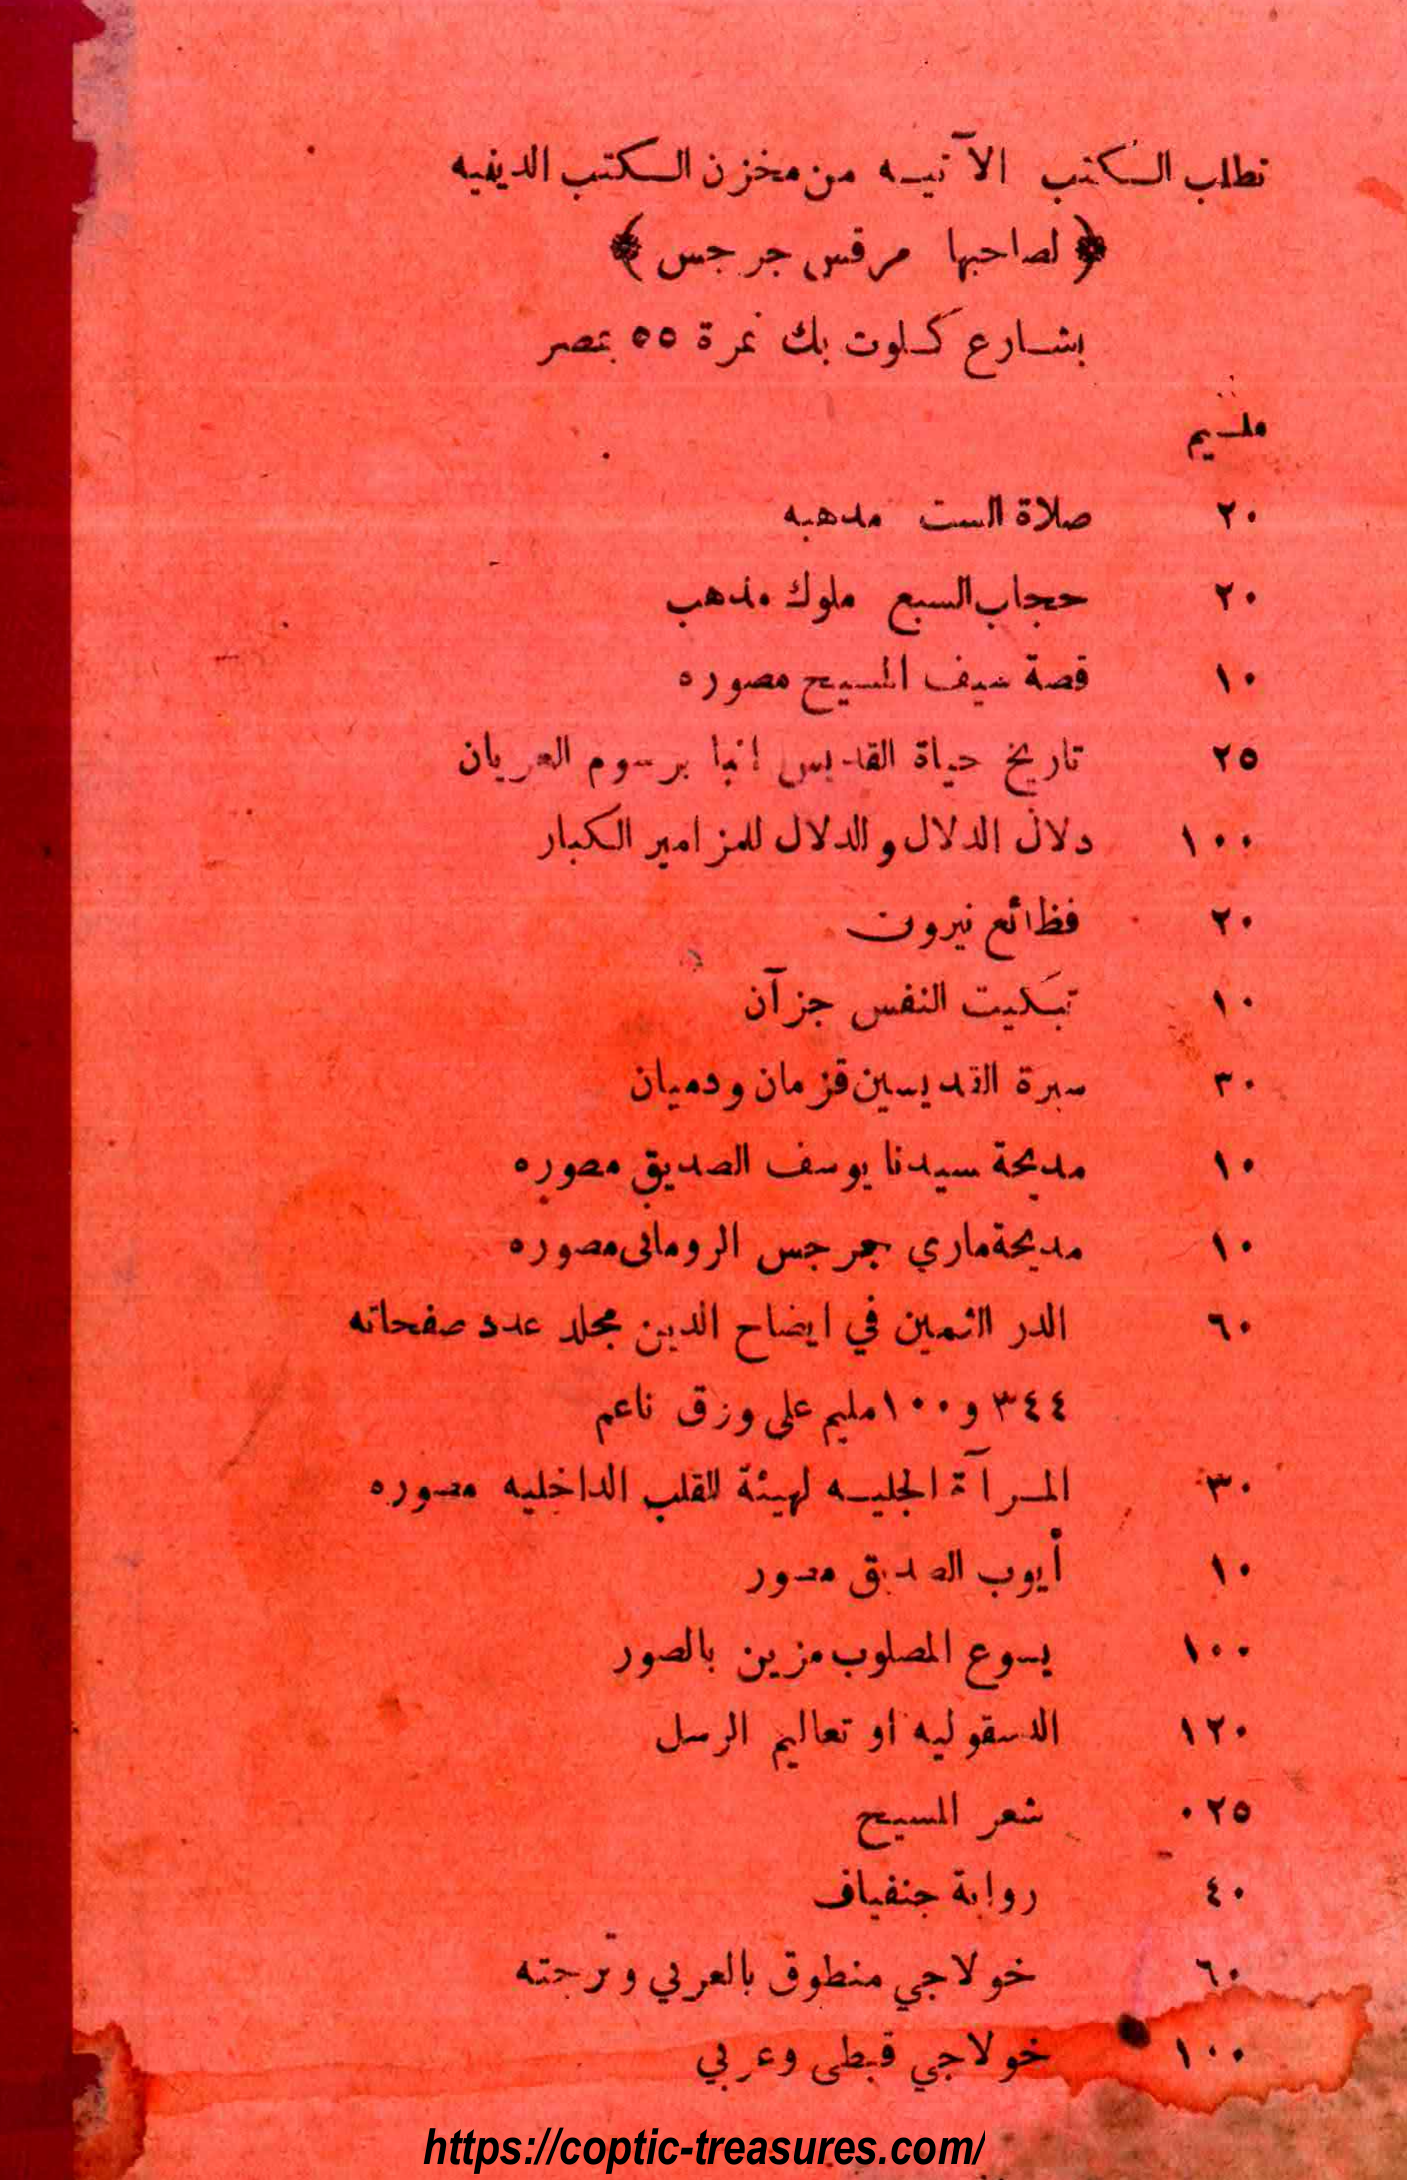 تطلب الكتب الآتيه من مخزن الكتب الدينيه
﴿ لصاحبها مرقس جرجس ﴾
بشارع كلوت بك نمرة ٥٥ بمصر
مليم
٢٠ صلاة الست مذهبه
٢٠ حجاب السبع ملوك مذهب
١٠ قصة سيف المسيح مصوره
٢٥ تاريخ حياة القديس انبا برسوم العريان
١٠٠ دلال الدلال والدلال للمزامير الكبار
٢٠ فظائع نيرون
١٠ تبكيت النفس جزآن
٣٠ سيرة القديسين قزمان ودميان
١٠ مديحة سيدنا يوسف الصديق مصوره
١٠ مديحة ماري جرجس الرومانى مصوره
٦٠ الدر الثمين في ايضاح الدين مجلد عدد صفحاته
٣٤٤ و ١٠٠ مليم على ورق ناعم
٣٠ المرآة الجليه لهيئة القلب الداخليه مصوره
١٠ أيوب الصديق مصور
١٠٠ يسوع المصلوب مزين بالصور
١٢٠ الدسقوليه او تعاليم الرسل
٠٢٥ شعر المسيح
٤٠ رواية جنفياف
٦٠ خولاجي منطوق بالعربي وترجمته
١٠٠ خولاجي قبطى وعربي
https://coptic-treasures.com/